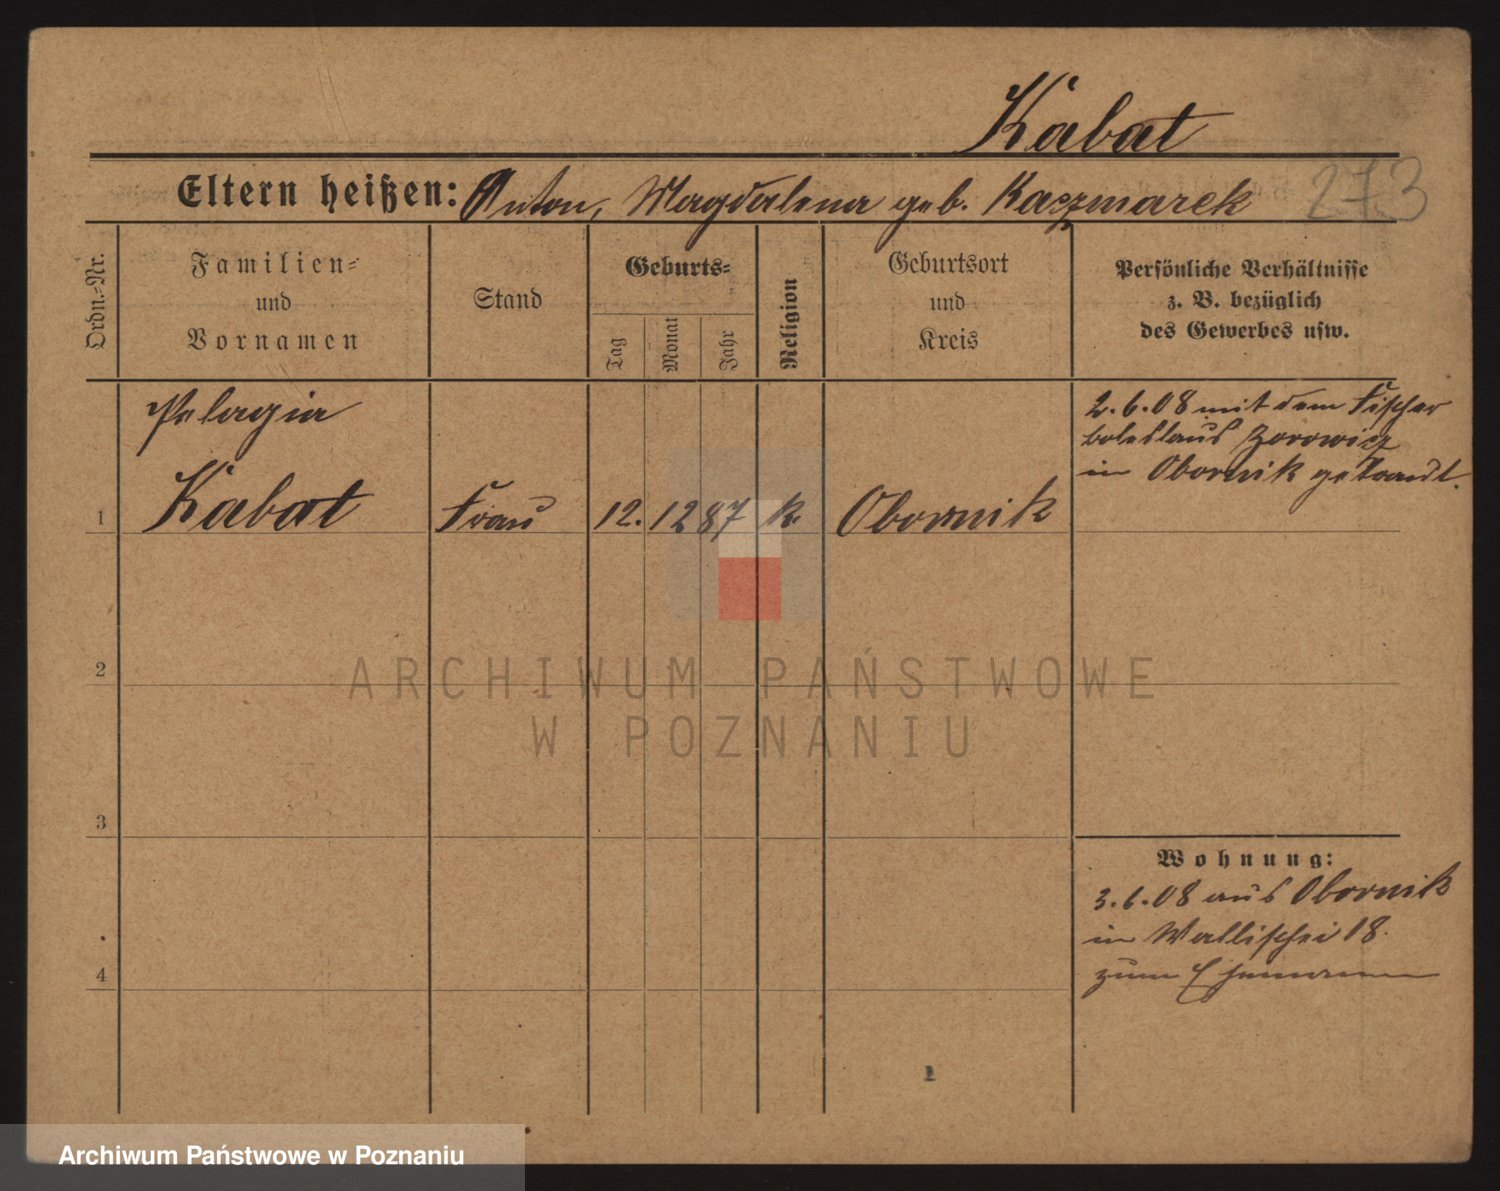 Kabat
Eltern heißen: Anton, Magdalena geb. Kaczmarek 273
Ordn.-Nr.
Familien-
und
Vornamen
Stand
Geburts-
Tag
Monat
Jahr
Religion
Geburtsort
und
Kreis
Persönliche Verhältnisse
z. B. bezüglich
des Gewerbes usw.
Pelagia
1 Kabat Frau 12. 12 87 k. Obornik
2.6.08 mit dem Fischer
Boleslaus Zorowicz
in Obornik getraut.
2
3
4
Wohnung:
3.6.08 aus Obornik
in Wallischei 18.
zum Ehemann
1
ARCHIWUM PAŃSTWOWE
W POZNANIU
Archiwum Państwowe w Poznaniu